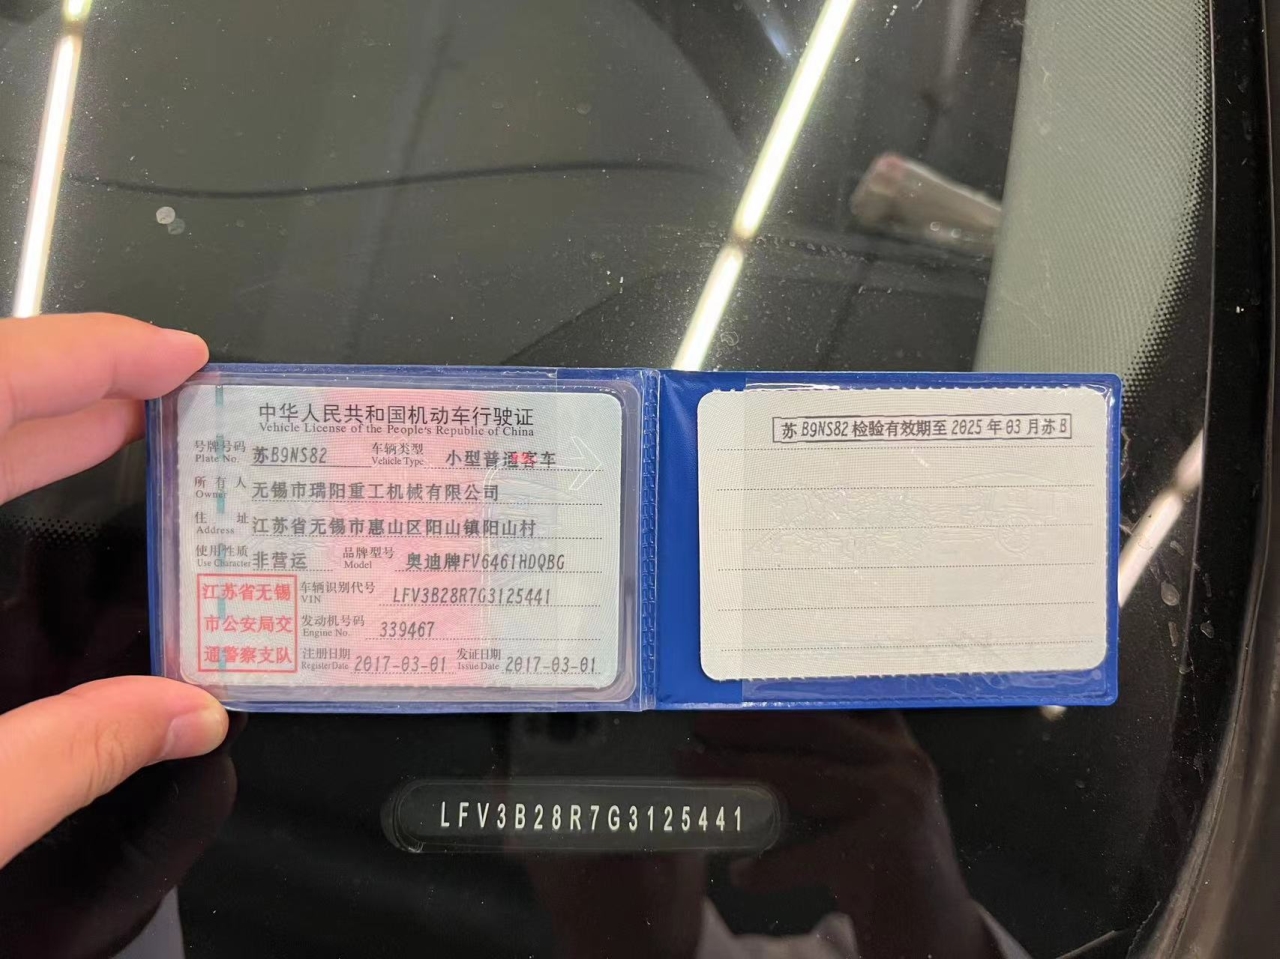 中华人民共和国机动车行驶证
Vehicle License of the People's Republic of China
号牌号码 Plate No. 苏B9NS82 车辆类型 Vehicle Type 小型普通客车
所有人 Owner 无锡市瑞阳重工机械有限公司
住址 Address 江苏省无锡市惠山区阳山镇阳山村
使用性质 Use Character 非营运 品牌型号 Model 奥迪牌FV6461HDQBG
江苏省无锡
市公安局交
通警察支队
车辆识别代号 VIN LFV3B28R7G3125441
发动机号码 Engine No. 339467
注册日期 Register Date 2017-03-01 发证日期 Issue Date 2017-03-01
苏B9NS82检验有效期至2025年03月苏B
LFV3B28R7G3125441